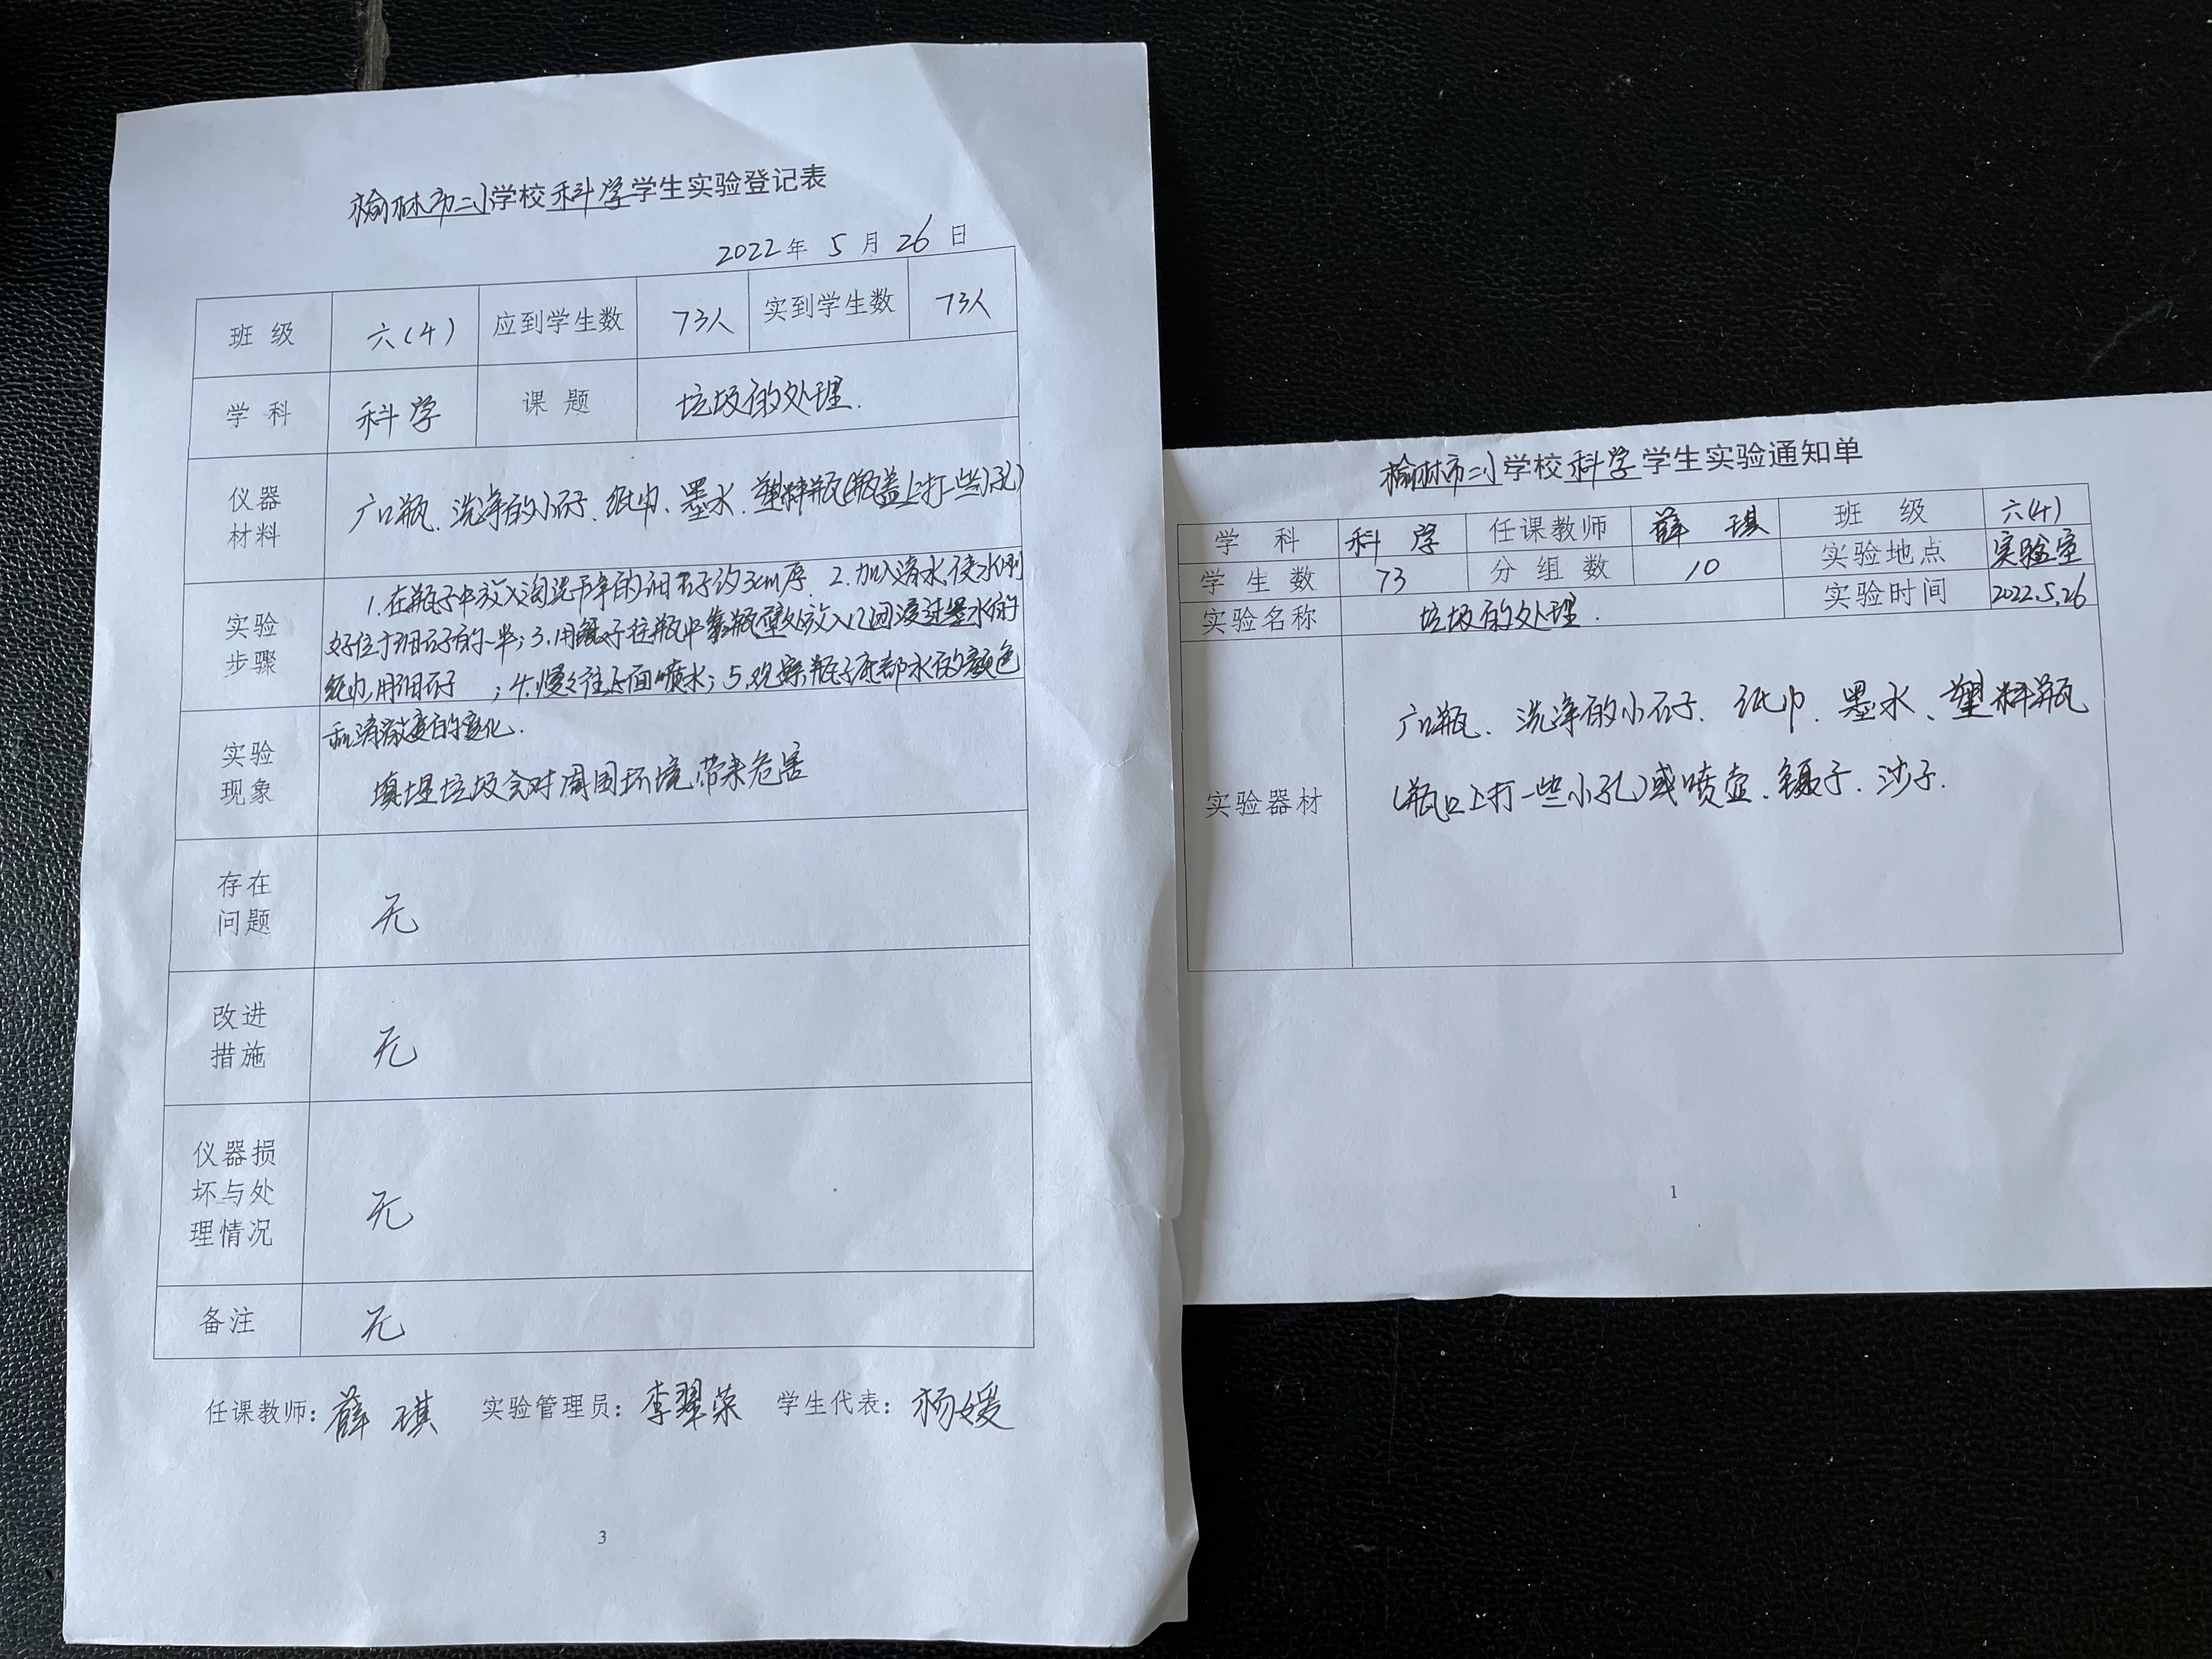 榆林市二小学校科学学生实验登记表
2022年 5 月 26 日
班 级 六(4) 应到学生数 73人 实到学生数 73人
学 科 科学 课 题 垃圾的处理.
仪器
材料
广口瓶、洗净的小石子、纸巾、墨水、塑料瓶(瓶盖上打一些小孔)
实验
步骤
1.在瓶子中放入淘洗干净的细石子约3cm厚 2.加入清水,使水刚
好位于细石子的一半;3.用镊子往瓶中靠瓶壁处放入 浸过墨水的
纸巾,用细石子 ;4.慢慢往上面喷水;5.观察瓶子底部水的颜色
和清澈度的变化.
实验
现象
填埋垃圾会对周围环境带来危害
存在
问题
无
改进
措施
无
仪器损
坏与处
理情况
无
备注 无
任课教师:薛琪 实验管理员:李翠荣 学生代表:杨媛
3
榆林市二小学校科学学生实验通知单
学 科 科 学 任课教师 薛 琪 班 级 六(4)
学 生 数 73 分 组 数 10 实验地点 实验室
实验名称 垃圾的处理. 实验时间 2022.5.26
实验器材
广口瓶、洗净的小石子、纸巾、墨水、塑料瓶
(瓶口上打一些小孔)或喷壶、镊子、沙子.
1